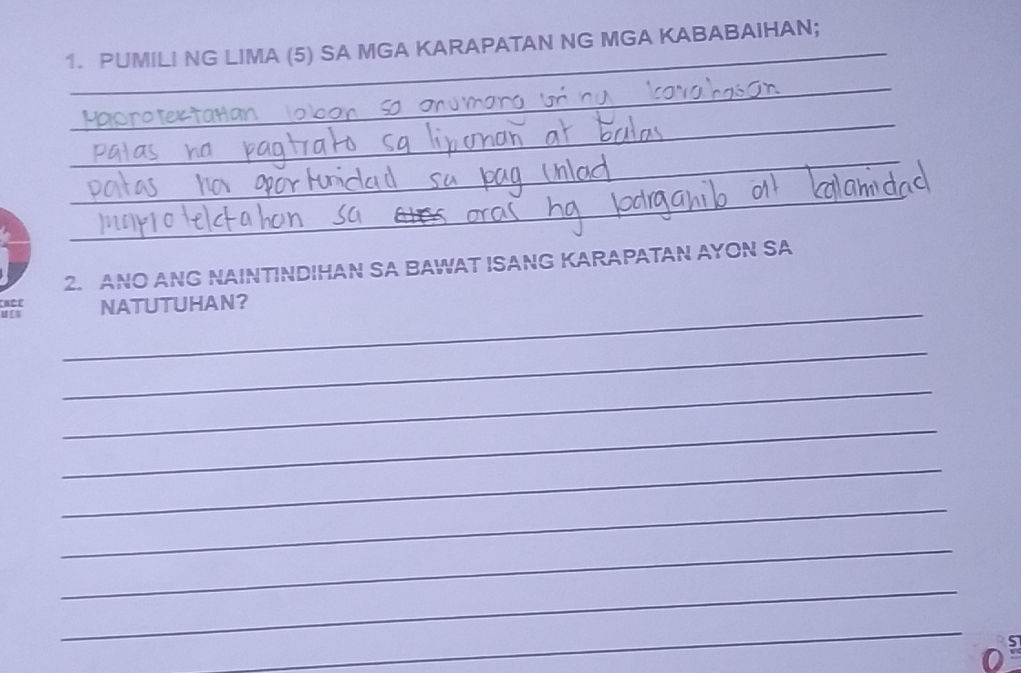 1. PUMILI NG LIMA (5) SA MGA KARAPATAN NG MGA KABABAIHAN;
laban sa anumang uri ng karahasan
patas na pagtrato sa lipunan at batas
patas na oportunidad sa pag inlad
maprotektahan sa oras ng panganib at kalamidad
2. ANO ANG NAINTINDIHAN SA BAWAT ISANG KARAPATAN AYON SA
NATUTUHAN?